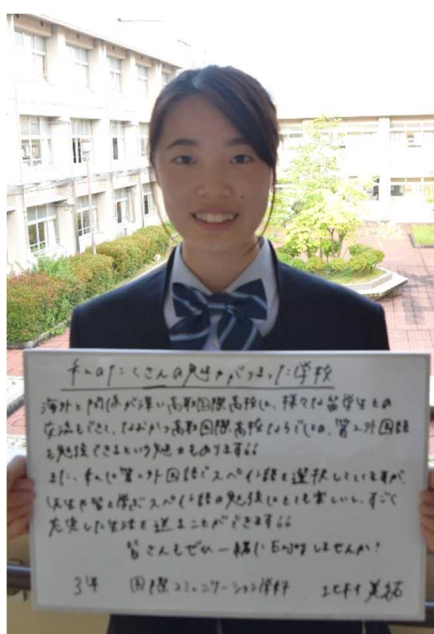 たくさんの魅力がつまった学校
海外と関係が深い高松国際高校は、様々な留学生との
交流もでき、なおかつ高松国際高校ならではの、第二外国語
も勉強できるという魅力もあります。
また、私は第二外国語でスペイン語を選択していますが、
先生や皆と学ぶスペイン語の勉強はとても楽しいし、すごく
充実した生活を送ることができます。
皆さんもぜひ一緒にEnjoyしませんか？
3年 国際コミュニケーション学科